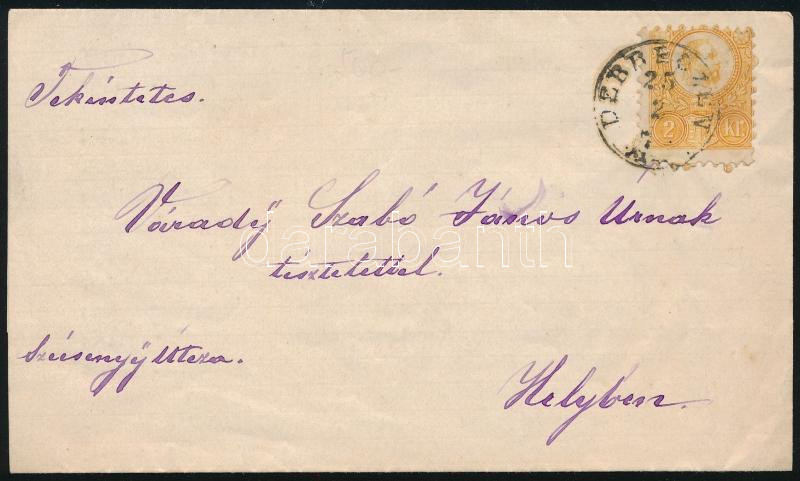 Tekintetes.
DEBRECZEN
25
2
2 Kr
Várady Szabó János Urnak
tisztelettel.
darabanth
Szécsenyÿ Utcza.
Helyben.